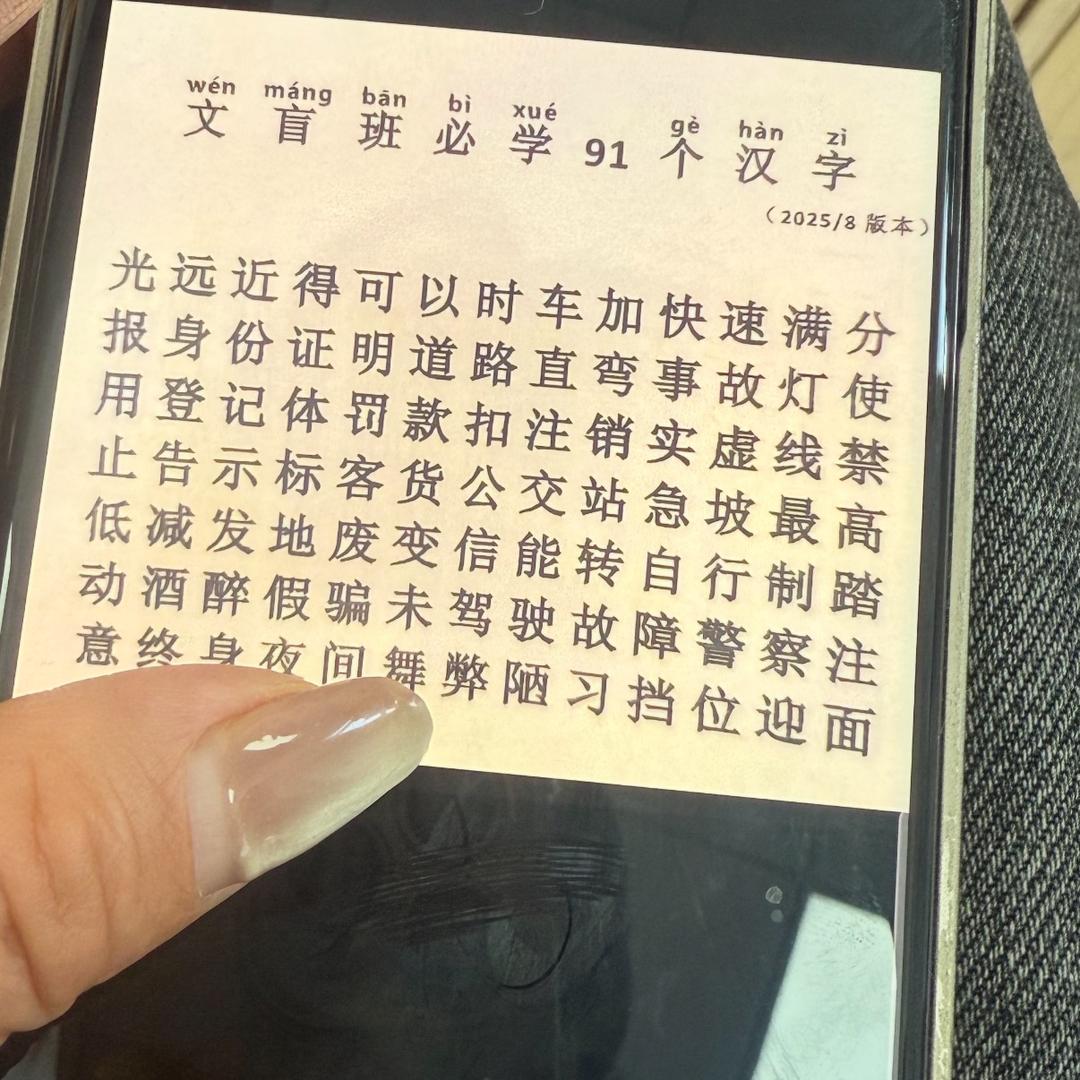 wén máng bān bì xué gè hàn zì
文盲班必学91个汉字
（2025/8 版本）
光远近得可以时车加快速满分
报身份证明道路直弯事故灯使
用登记体罚款扣注销实虚线禁
止告示标客货公交站急坡最高
低减发地废变信能转自行制踏
动酒醉假骗未驾驶故障警察注
意终身夜间舞弊陋习挡位迎面